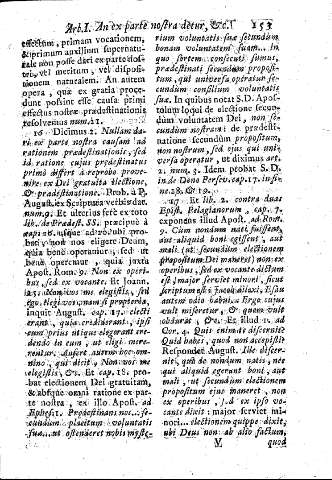 Art. I. An ex parte nostra detur, &c. 153
effectum, primam vocationem,
& primum auxilium supernatu-
rale non posse dari ex parte dispo-
vel meritum, vel disposi-
tionem naturalem. An autem
opera, quæ ex gratia proce-
dunt possint esse causa primi
effectus nostræ prædestinationis
resolvemus num. 21.
16 Dicimus 2. Nullam da-
ri ex parte nostra causam ad
rationem prædestinationis, sed
ad ratione cujus prædestinatus
primo differt à reprobo prove-
nire ex Dei gratuita electione,
& prædestinatione. Prob. à P.
August. ex Scripturæ verbis dat.
num. 9. Et ulterius sent ex toto
lib. de Prædest. SS. à
cap. 16. usque ad proba-
bat non nos eligere Deum,
quia bene operatur, sed ut
bene operemur, quia juxta
Apost. Rom. 9. Non ex operi-
bus, sed ex vocante. Et Joann.
15. Non vos me elegistis, sed
ego elegi vos, nam si propterea,
inquit August. cap. 17. electi
erant, quia crediderant, ipsi
eum prius utique elegerant cre-
dendo in eum, ut eligi mere-
rentur. Aufert autem hoc om-
nino, qui dicit, Non vos me
elegistis, &c. Et cap. 18. pro-
bat electionem Dei gratuitam,
& absque omni ratione ex par-
te nostra, ex illo Apost. ad
Ephes. 1. Prædestinans nos... se-
cundum placitum voluntatis
suæ... ut ostenderet nobis myste-
rium voluntatis suæ secundum
bonam voluntatem suam... in
quo sortem consecuti sumus,
prædestinati secundum proposi-
tum, qui universa operatur se-
cundum consilium voluntatis
suæ. In quibus notat S. D. Apo-
stolum loqui de electione secun-
dum voluntatem Dei, non se-
cundum nostram: de prædesti-
natione secundum propositum,
non nostrum, sed ejus qui uni-
versa operatur, ut diximus art.
2. num. 3. Idem probat S. D.
in de Dono Persev. cap. 17. in si-
nu. 18. & 19.
17 Et lib. 2. contra duas
Epist. Pelagianorum, cap. 7.
exponens illud Apost. ad Rom.
9. Cum nondum nati fuissent,
aut aliquid boni egissent, aut
mali (ut secundum electionem
propositum Dei maneret) non ex
operibus, sed ex vocante dictum
est: major serviet minori, sicut
scriptum est: Jacob dilexi, Esau
autem odio habui. Ergo cujus
vult miseretur, & quem vult
obdurat, &c. Et illud 1. ad
Cor. 4. Quis enim te discernit?
Quid habes, quod non accepisti?
Respondet August. illa disser-
quod de nondum natis, nec
qui aliquid egerunt boni, aut
mali, ut secundum electionem
propositum ejus maneret, non
ex operibus, sed ex ipso vo-
cante dixit: major serviet mi-
nori... electionem quippe dixit,
ubi Deus non ab alio factum,
V quod